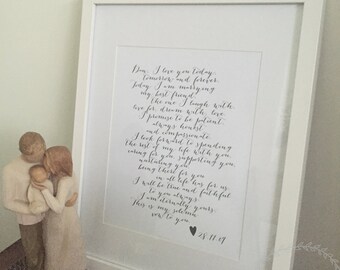 Dan, I love you today,
tomorrow and forever.
Today, I am marrying
my best friend,
the one I laugh with,
live for, dream with, love.
I promise to be patient,
always honest
and compassionate.
I look forward to spending
the rest of my life with you,
caring for you, supporting you,
nurturing you,
being there for you
in all life has for us.
I will be true and faithful
to you always.
I am eternally yours.
This is my solemn
vow to you.